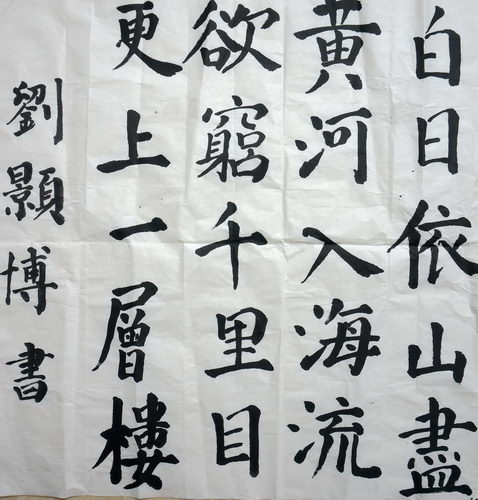 白日依山盡
黄河入海流
欲窮千里目
更上一層樓
劉顥博書